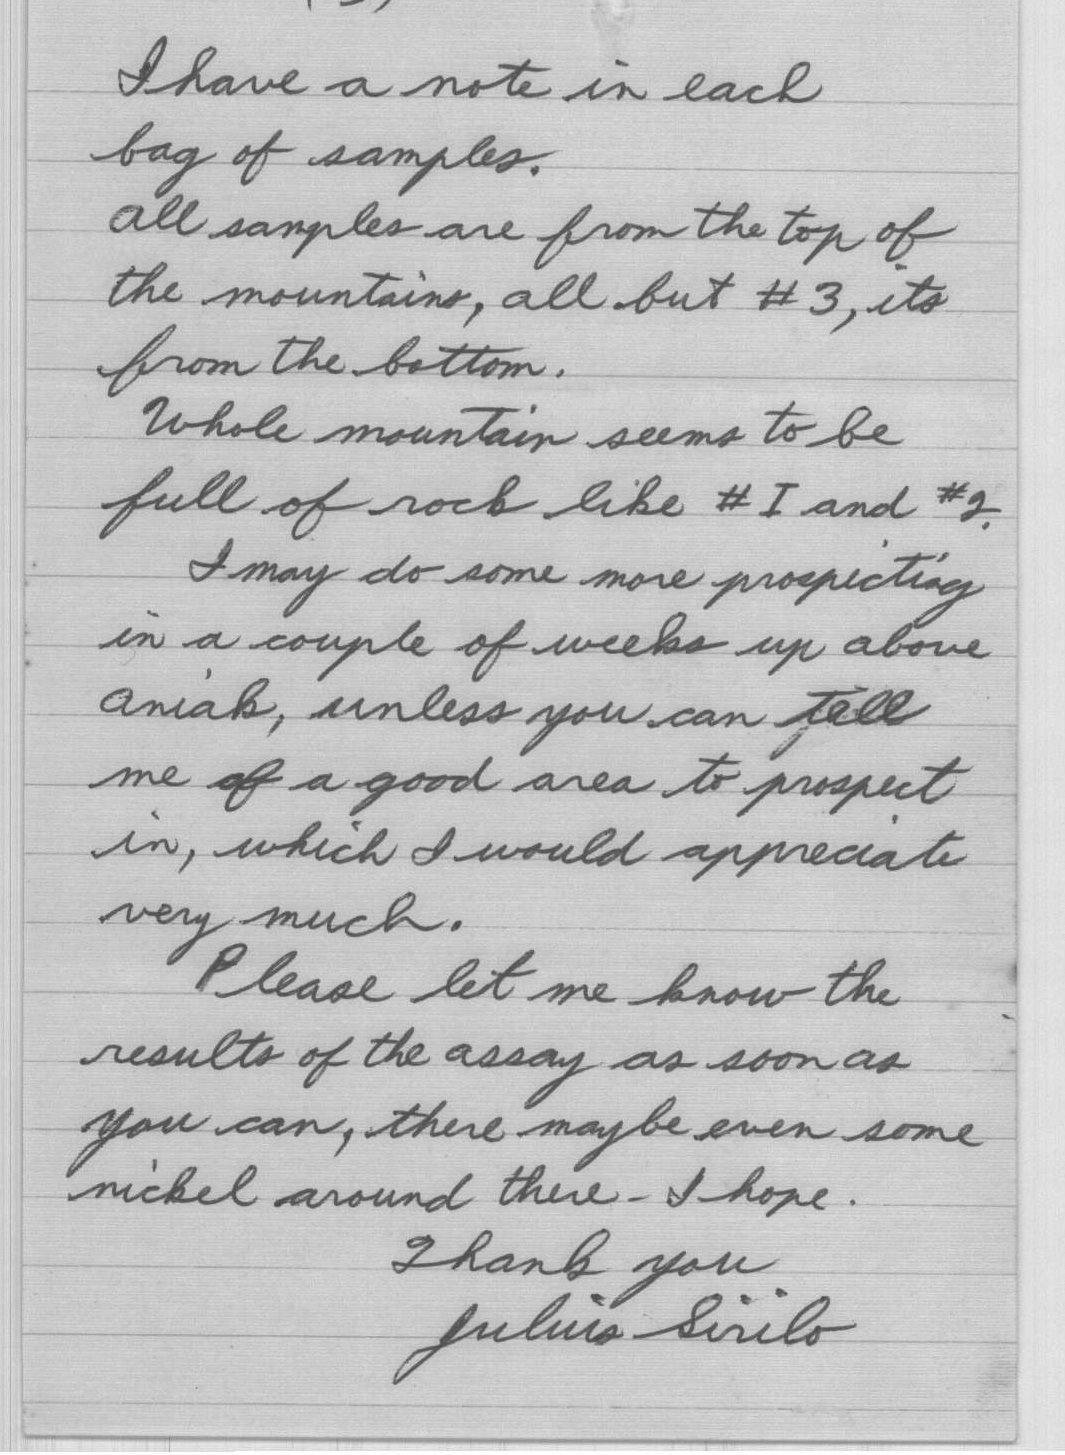 I have a note in each
bag of samples.
All samples are from the top of
the mountains, all but #3, its
from the bottom.
Whole mountain seems to be
full of rock like #I and #2.
I may do some more prospecting
in a couple of weeks up above
Aniak, unless you can tell
me of a good area to prospect
in, which I would appreciate
very much.
Please let me know the
results of the assay as soon as
you can, there maybe even some
nickel around there - I hope.
Thank you
Julius Sirilo